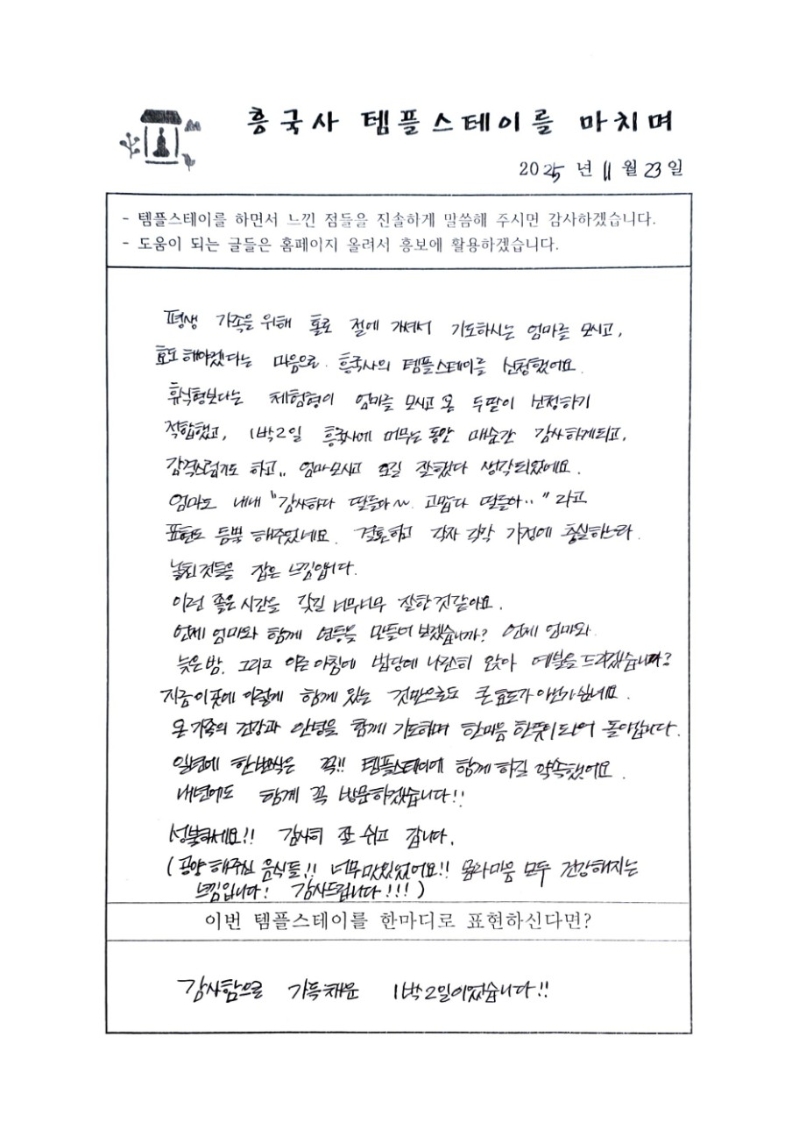 흥국사 템플스테이를 마치며
2025 년 11 월 23 일
- 템플스테이를 하면서 느낀 점들을 진솔하게 말씀해 주시면 감사하겠습니다.
- 도움이 되는 글들은 홈페이지 올려서 홍보에 활용하겠습니다.
평생 가족을 위해 홀로 절에 가셔서 기도하시는 엄마를 모시고,
효도해야겠다는 마음으로 흥국사의 템플스테이를 신청했어요.
휴식형보다는 체험형이 엄마를 모시고 온 두딸이 신청하기
적합했고, 1박2일 흥국사에 머무는 동안 매순간 감사하게되고,
감격스럽기도 하고.. 엄마모시고 오길 잘했다 생각되었네요.
엄마도 내내 "감사하다 딸들아~ 고맙다 딸들아.." 라고
표현도 듬뿍 해주었네요. 결혼하고 각자 각각 가정에 충실하느라
놓친것들을 잡은 느낌입니다.
이런 좋은 시간을 갖길 너무너무 잘한것같아요.
언제 엄마와 함께 연등을 만들어 보겠습니까? 언제 엄마와
늦은밤, 그리고 이른 아침에 법당에 나란히 앉아 예불을 드리겠습니까?
지금 이곳에 이렇게 함께 있는 것만으로도 큰 효도가 아닌가 싶네요.
온 가족의 건강과 안녕을 함께 기도하며 한마음 한뜻이 되어 돌아갑니다.
일년에 한번씩은 꼭!! 템플스테이에 함께 하길 약속했어요.
내년에도 함께 꼭 방문하겠습니다!!
성불하세요!! 감사히 잘 쉬고 갑니다.
(공양 해주신 음식들!! 너무맛있었어요!! 몸과마음 모두 건강해지는
느낌입니다! 감사드립니다!!!)
이번 템플스테이를 한마디로 표현하신다면?
감사함으로 가득채운 1박2일이었습니다!!